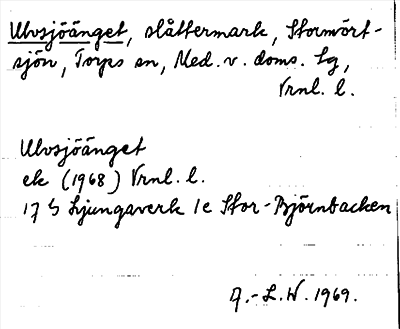 Ulvsjöänget, slåttermark, Stormört-
sjön, Torps sn, Med. v. doms. lg,
Vrnl. l.
Ulvsjöänget
ek (1968) Vrnl. l.
17 G Ljungaverk 1e Stor-Björnbacken
A.-L.W. 1969.